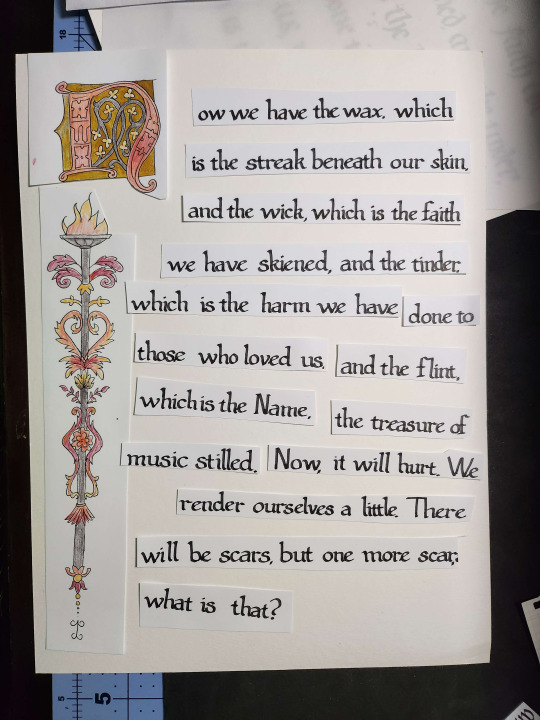 Now we have the wax, which
is the streak beneath our skin,
and the wick, which is the faith
we have skiened, and the tinder,
which is the harm we have done to
those who loved us, and the flint,
which is the Name, the treasure of
music stilled. Now, it will hurt. We
render ourselves a little. There
will be scars, but one more scar,
what is that?
18
5
5